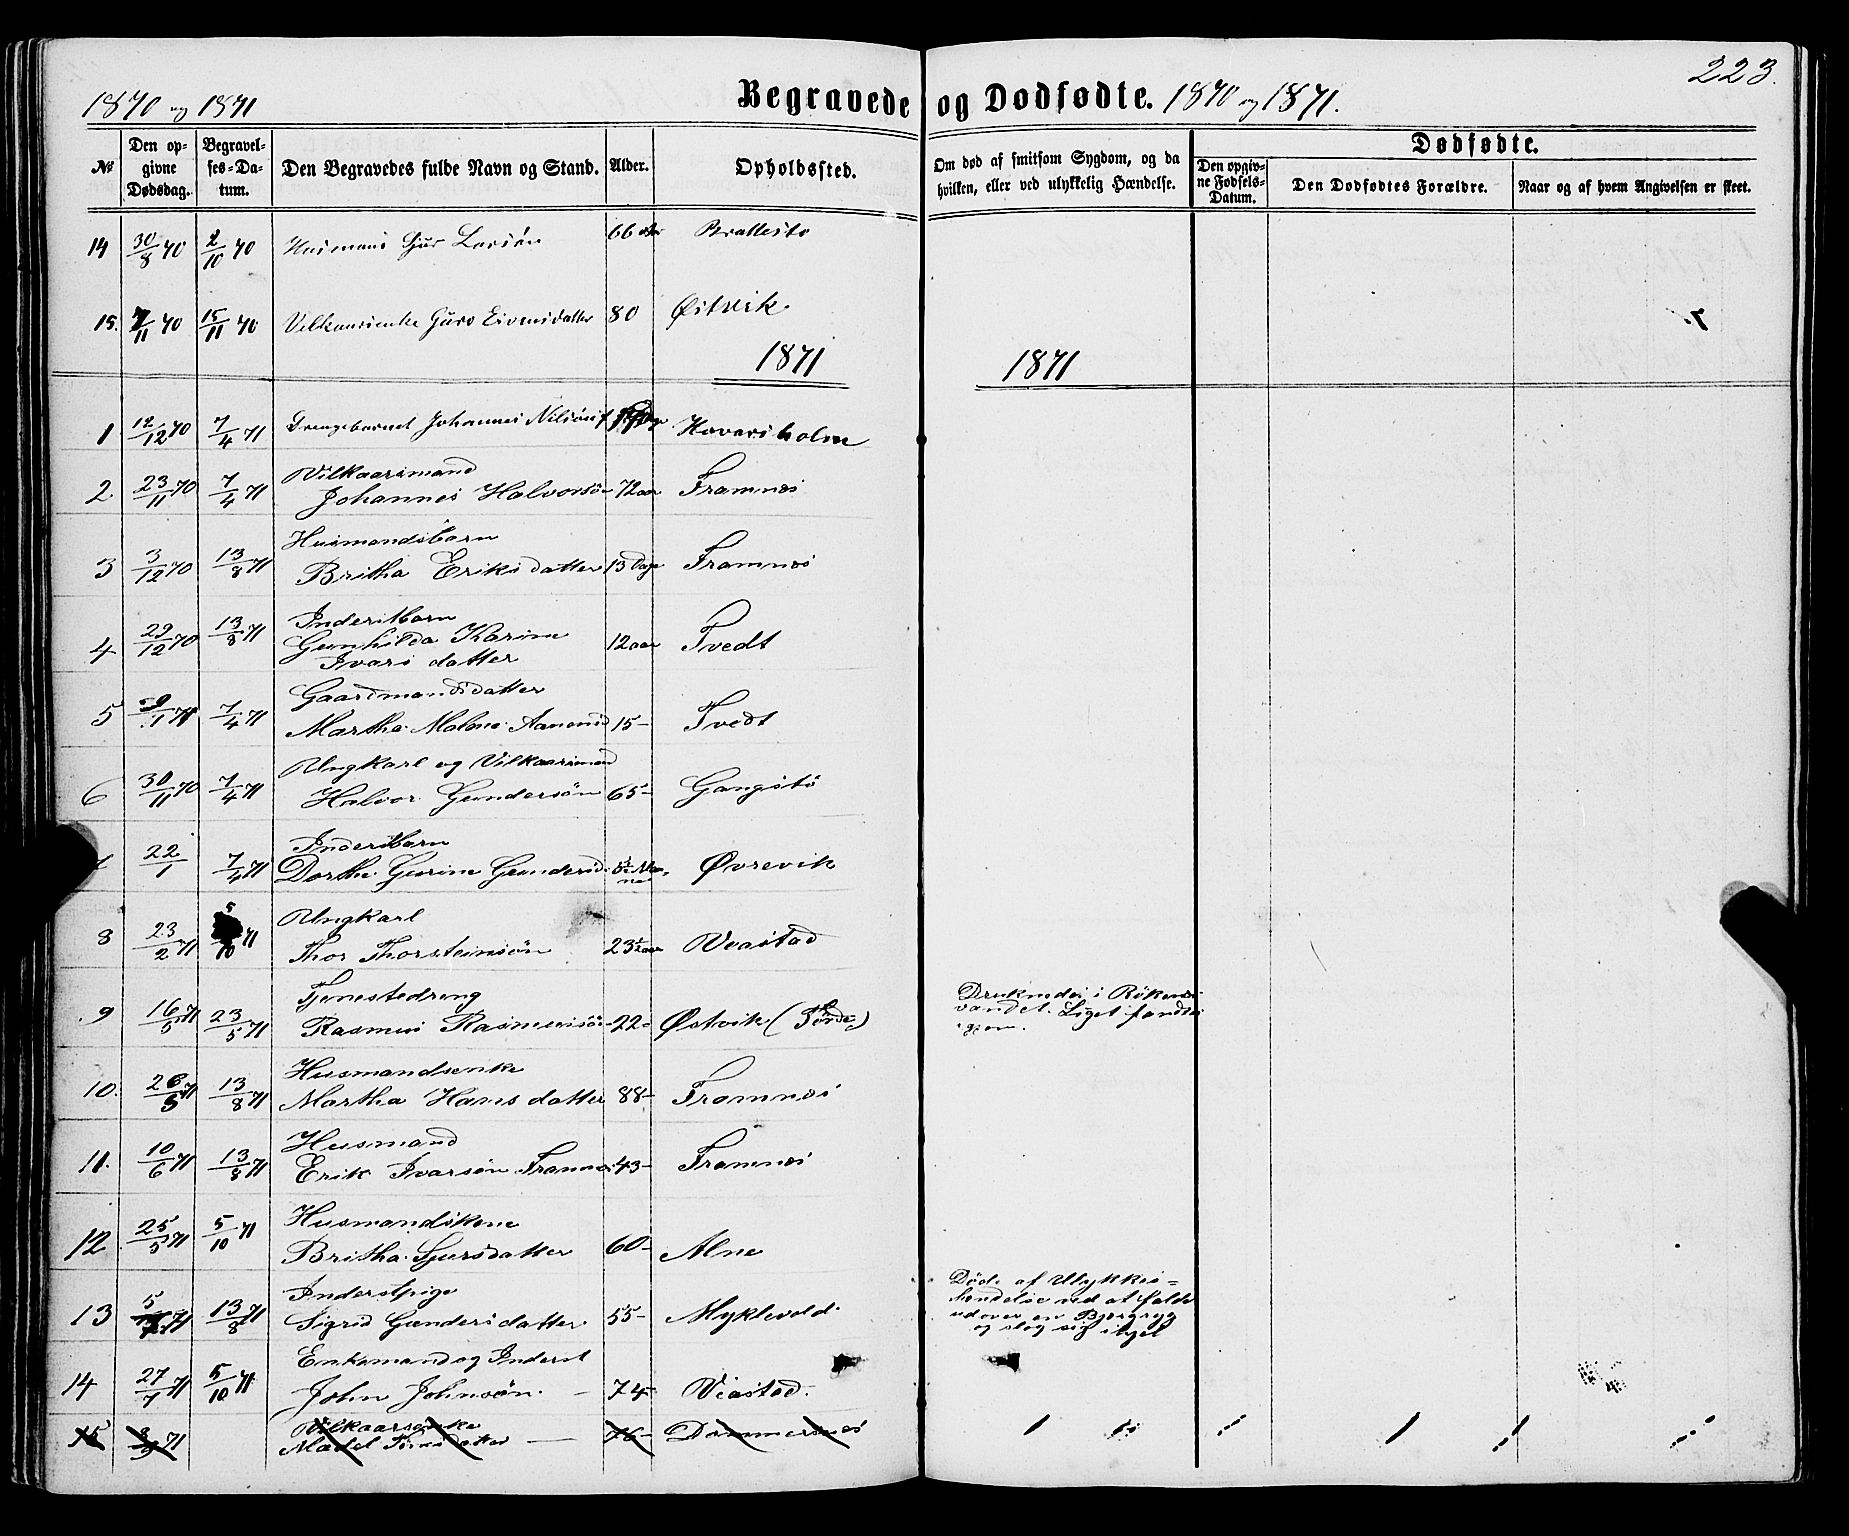 223.
1870 og 1871
Begravede og Dødfødte. 1870 og 1871.
№
Den opgivne Dødsdag.
Begravelses-Datum.
Den Begravedes fulde Navn og Stand.
Alder.
Opholdssted.
Om død af smitsom Sygdom, og da hvilken, eller ved ulykkelig Hændelse.
Dødfødte.
Den opgivne Fødsels-Datum.
Den Dødfødtes Forældre.
Naar og af hvem Angivelsen er skeet.
14 30/8 70 2/10 70 Husmand Gur Larsön 66 Aar
15. 7/11 70 15/11 70 Vilkaarsenke Guro Eivindsdatter 80 Østvik
1871 1871
1 12/12 70 7/4 71 Drengebarnet Johannes Hovarsholm
2 23/11 70 7/4 71 Vilkaarsmand
Johannes Halvorsön 72 aar Framnæs
3 3/12 70 13/8 71 Husmandsbarn
Britha Eriksdatter 13 Dage Framnæs
4 29/12 70 13/8 71 Inderstbarn
Gunhilda Karine
Ivarsdatter 12 aar Tvedt
5 9/1 71 7/4 71 Gaardmandsdatter
Martha Malene Aanensd 15- Tvedt
6 30/11 70 7/4 71 Ungkarl og Vilkaarsmand
Halvor Gundersön 65- Gangstö
22/1 7/4 71 Inderstbarn
Dorthe Gurine Gundersd. Øvrevik
8 23/2 71 5/10 71 Ungkarl
Thor Thorsteinsön 23½ aar Veastad
9 16/5 71 23/5 71 Tjenestedreng
Rasmus Rasmussön 22- Østvik
Druknede i
vandet. Liget fandtes
igjen.
10. 26/5 71 13/8 71 Husmandsenke
Martha Hansdatter 88- Framnæs
11. 10/6 71 13/8 71 Husmand
Erik Ivarsön Framnæs 43- Framnæs
12 25/5 71 5/10 71 Husmandskone
Britha Sjursdatter 60- Alne
13 5/7 71 13/8 71 Inderstpige
Sigrid Gundersdatter 55- Myklevold
Døde af Ulykkes=
hendelse ved at falde
udover en Bjergryg
og slog sig ihjel
14 27/7 71 5/10 71 Enkemand og Inderst
John Johnsön. - 74- Veastad.
15 71 Vilkaarsenke
76-